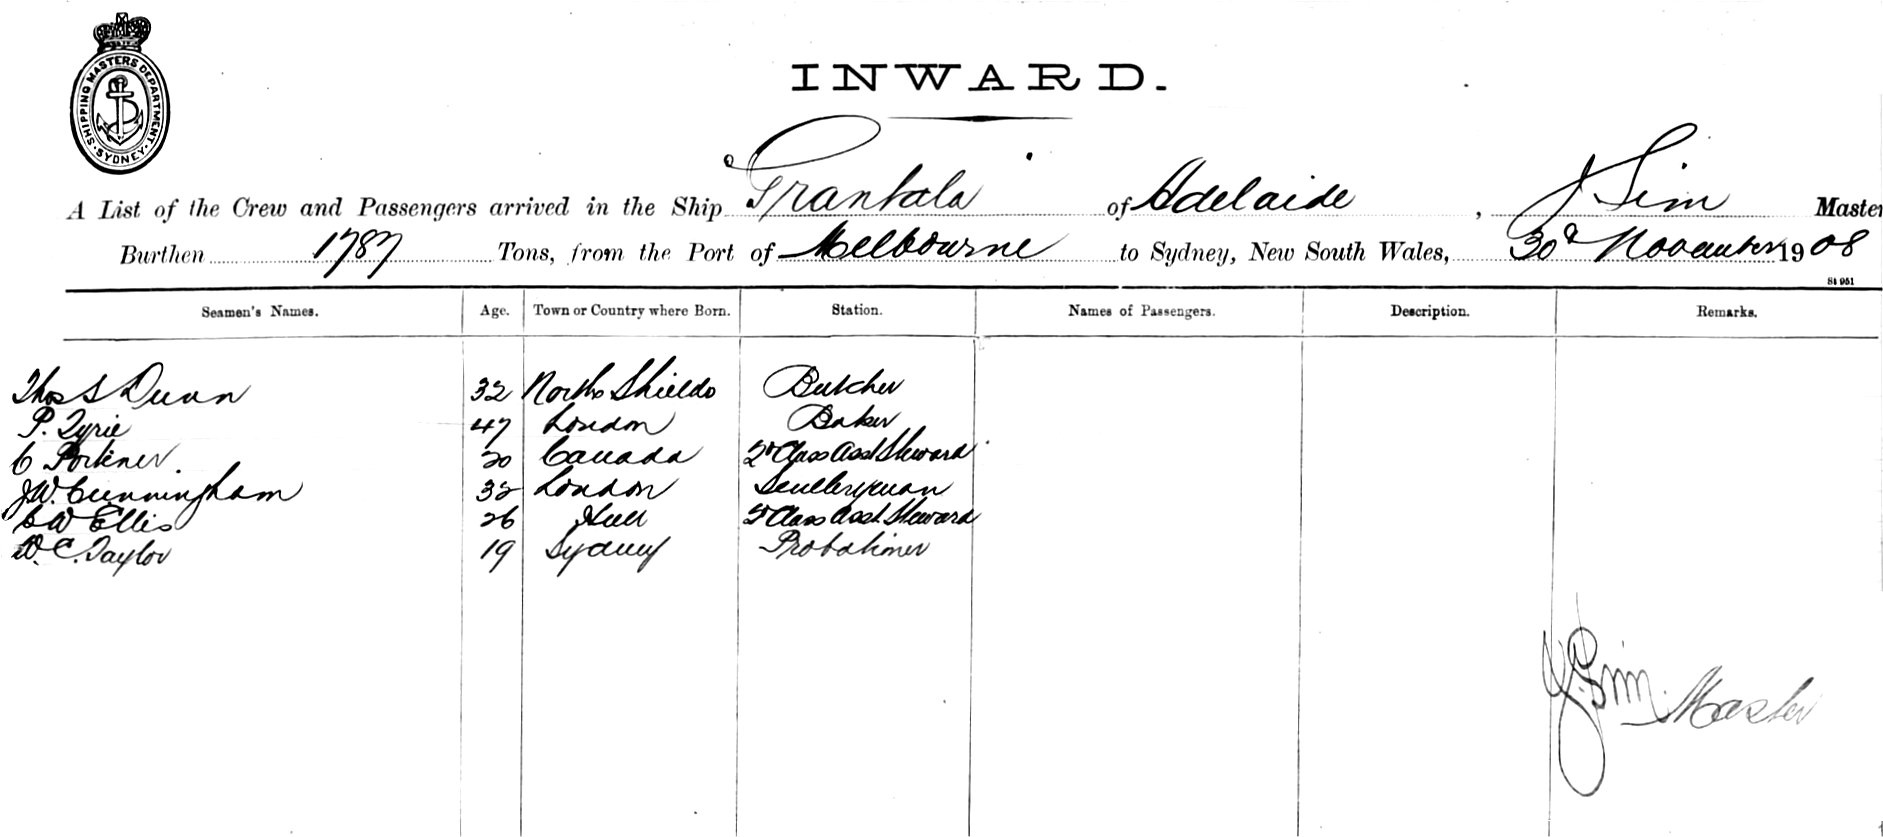 SHIPPING MASTERS DEPARTMENT. SYDNEY.
INWARD.
A List of the Crew and Passengers arrived in the Ship Grantala of Adelaide, J Sim Master
Burthen 1787 Tons, from the Port of Melbourne to Sydney, New South Wales, 30th November 1908
St 951
Seamen's Names. Age. Town or Country where Born. Station. Names of Passengers. Description. Remarks.
Thos S Dunn 32 North Shields Butcher
P. Tyrie 47 London Baker
C 20 Canada 2d Class Asst Steward
J.W. Cunningham 32 London Sculleryman
C W Ellis 26 Hull 2d Class Asst Steward
W. C. Taylor 19 Sydney Probationer
J. Sim Master